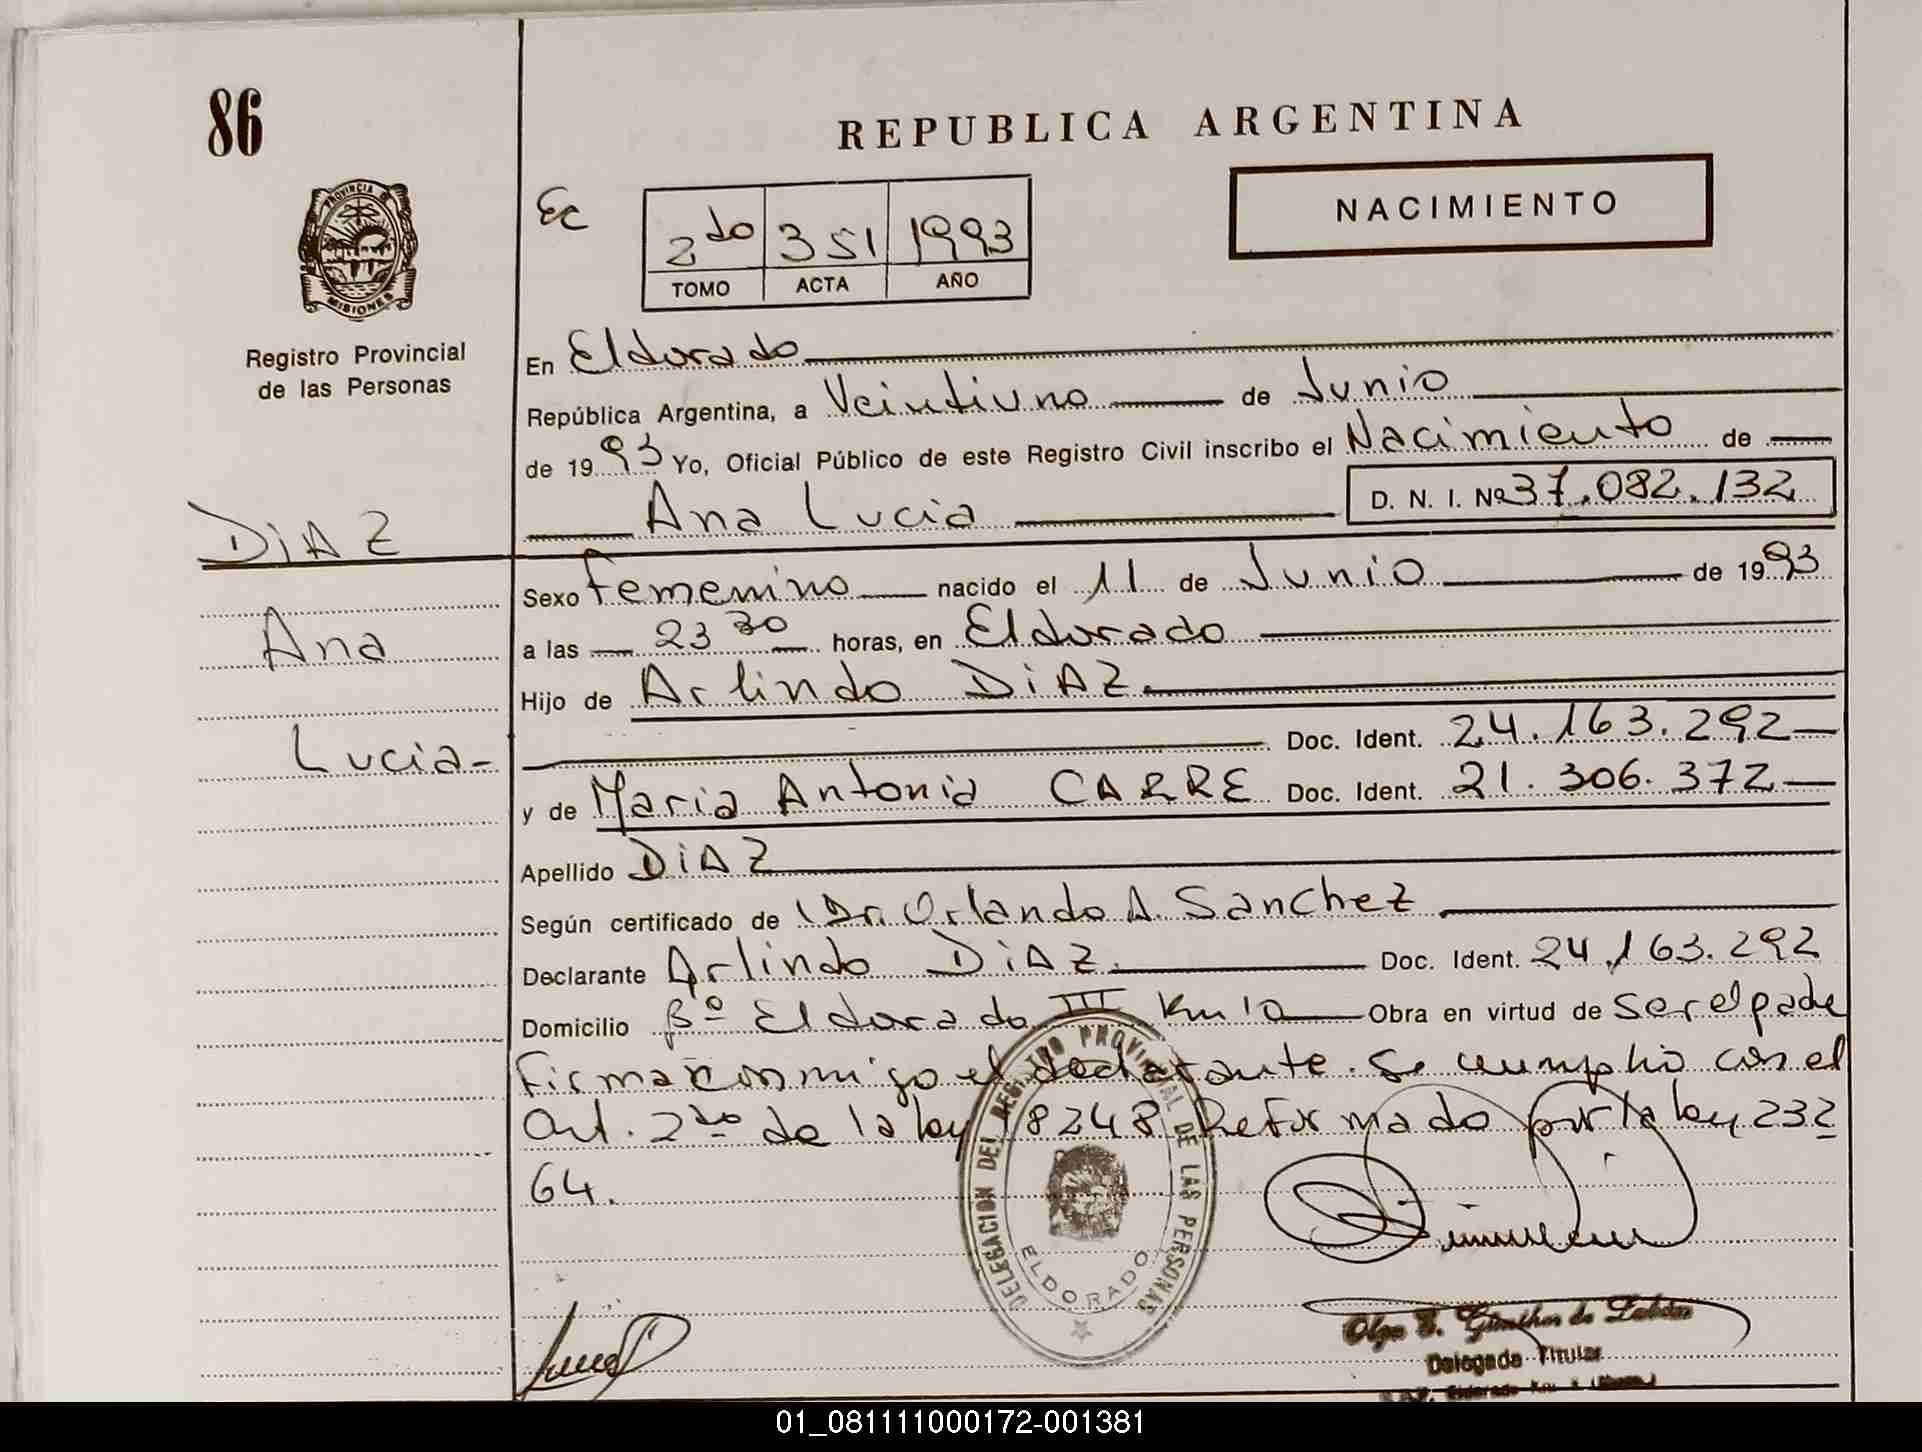 86
REPUBLICA ARGENTINA
PROVINCIA DE
MISIONES
Registro Provincial
de las Personas
Ec
2do 351 1993
TOMO ACTA AÑO
NACIMIENTO
En Eldorado
República Argentina, a Veintiuno de Junio
de 1993 Yo, Oficial Público de este Registro Civil inscribo el Nacimiento de
Ana Lucia D. N. I. Nº 37.082.132
DiAZ
Ana
Lucia-
Sexo Femenino nacido el 11 de Junio de 1993
a las 23 30 horas, en Eldorado
Hijo de Arlindo DiAZ.
Doc. Ident. 24.163.292
y de Maria Antonia CARRE Doc. Ident. 21.306.372
Apellido DiAZ
Según certificado de Dr. Orlando A. Sanchez
Declarante Arlindo DiAZ. Doc. Ident. 24.163.292
Domicilio Bº Eldorado III Km 10 Obra en virtud de ser el padre
Firma conmigo el declarante. Se cumplio con el
Art. 2do de la ley 18248 Reformado por la ley 232
64.
DELEGACION DEL REGISTRO PROVINCIAL DE LAS PERSONAS
ELDORADO
Olga Günther de
Delegada Titular
Eldorado Km.
01_081111000172-001381